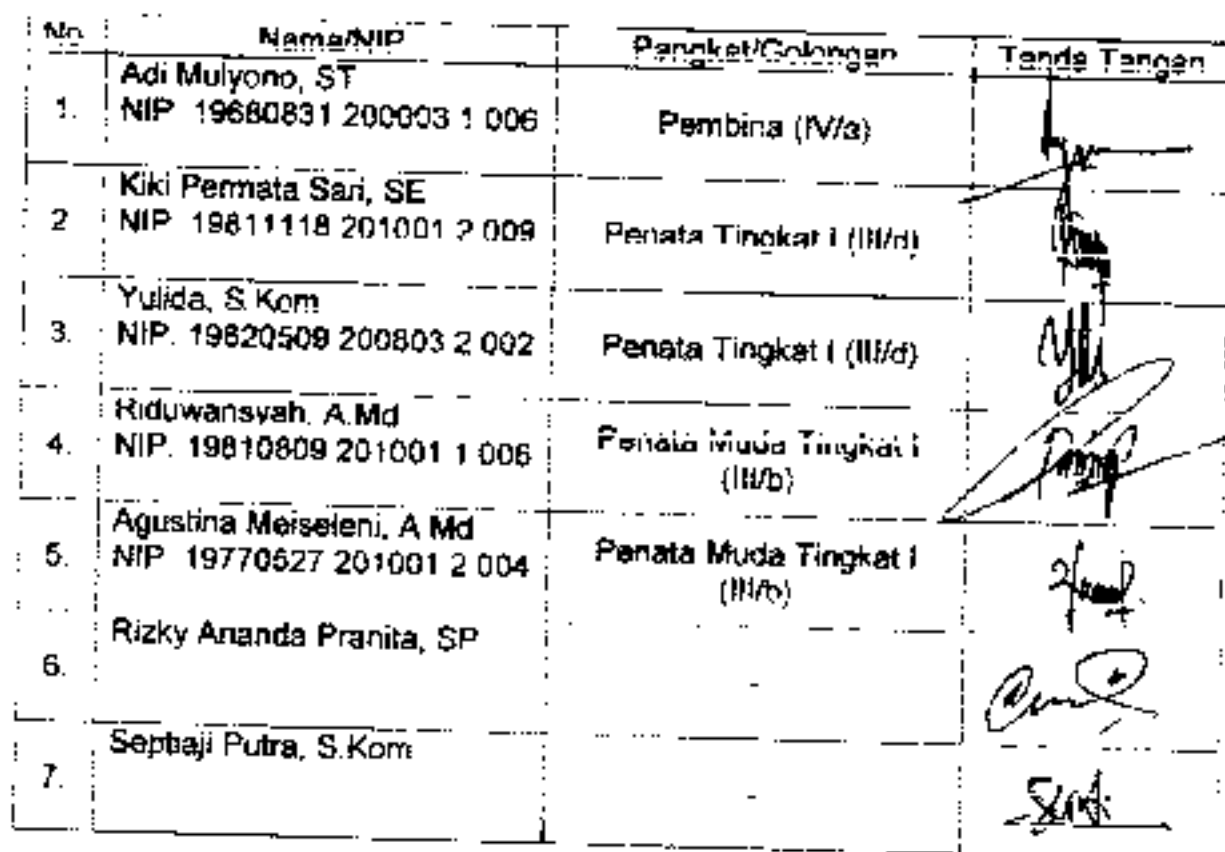 No. Nama/NIP Pangkat/Golongan Tanda Tangan
Adi Mulyono, ST
1. NIP. 19680831 200003 1 006 Pembina (IV/a)
Kiki Permata Sari, SE
2 NIP. 19811118 201001 2 009 Penata Tingkat I (III/d)
Yulida, S.Kom
3. NIP. 19820509 200803 2 002 Penata Tingkat I (III/d)
Riduwansyah, A.Md
4. NIP. 19810809 201001 1 006 Penata Muda Tingkat I
(III/b)
Agustina Meiseleni, A.Md
5. NIP. 19770527 201001 2 004 Penata Muda Tingkat I
(III/b)
Rizky Ananda Pranita, SP
6. -
Septiaji Putra, S.Kom
7. -